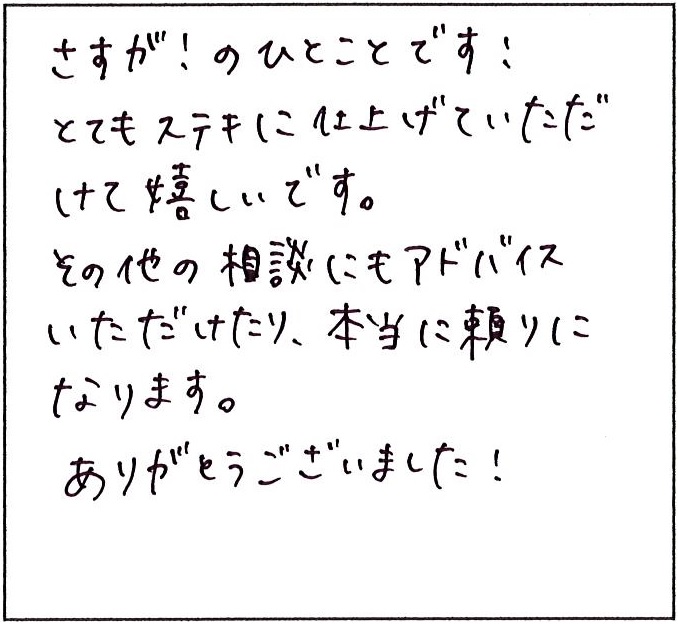 さすが!のひとことです!
とてもステキに仕上げていただ
けて嬉しいです。
その他の相談にもアドバイス
いただけたり、本当に頼りに
なります。
ありがとうございました!